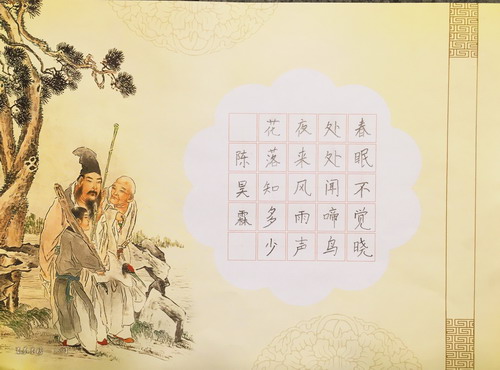 春眠不觉晓
处处闻啼鸟
夜来风雨声
花落知多少
陈昊霖